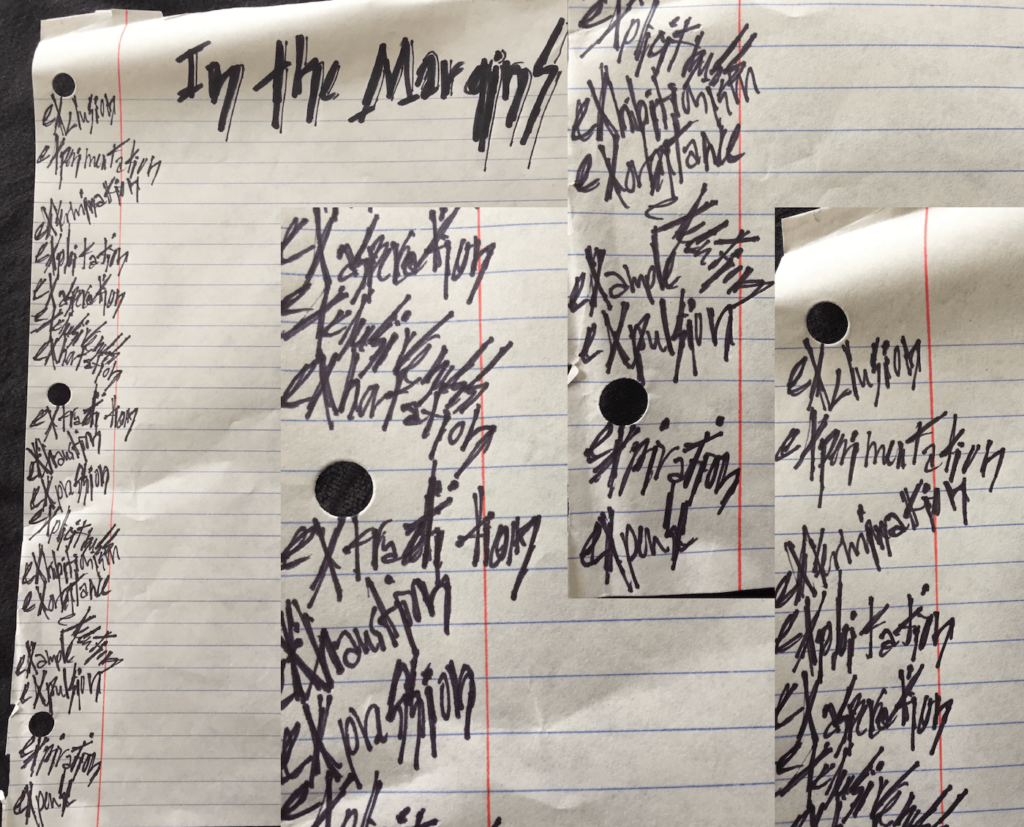 In the Margins
eXclusion
eXperimentation
eXtermination
eXploitation
eXasperation
eXclusiveness
eXhortation
eXtradition
eXhaustion
eXpression
eXplicitness
eXhibitionism
eXorbitance
eXecution
eXample
eXpulsion
eXpiration
eXpense
eXasperation
eXclusiveness
eXhortation
eXtradition
eXhaustion
eXpression
eXplicitness
eXhibitionism
eXorbitance
eXecution
eXample
eXpulsion
eXpiration
eXpense
eXclusion
eXperimentation
eXtermination
eXploitation
eXasperation
eXclusiveness